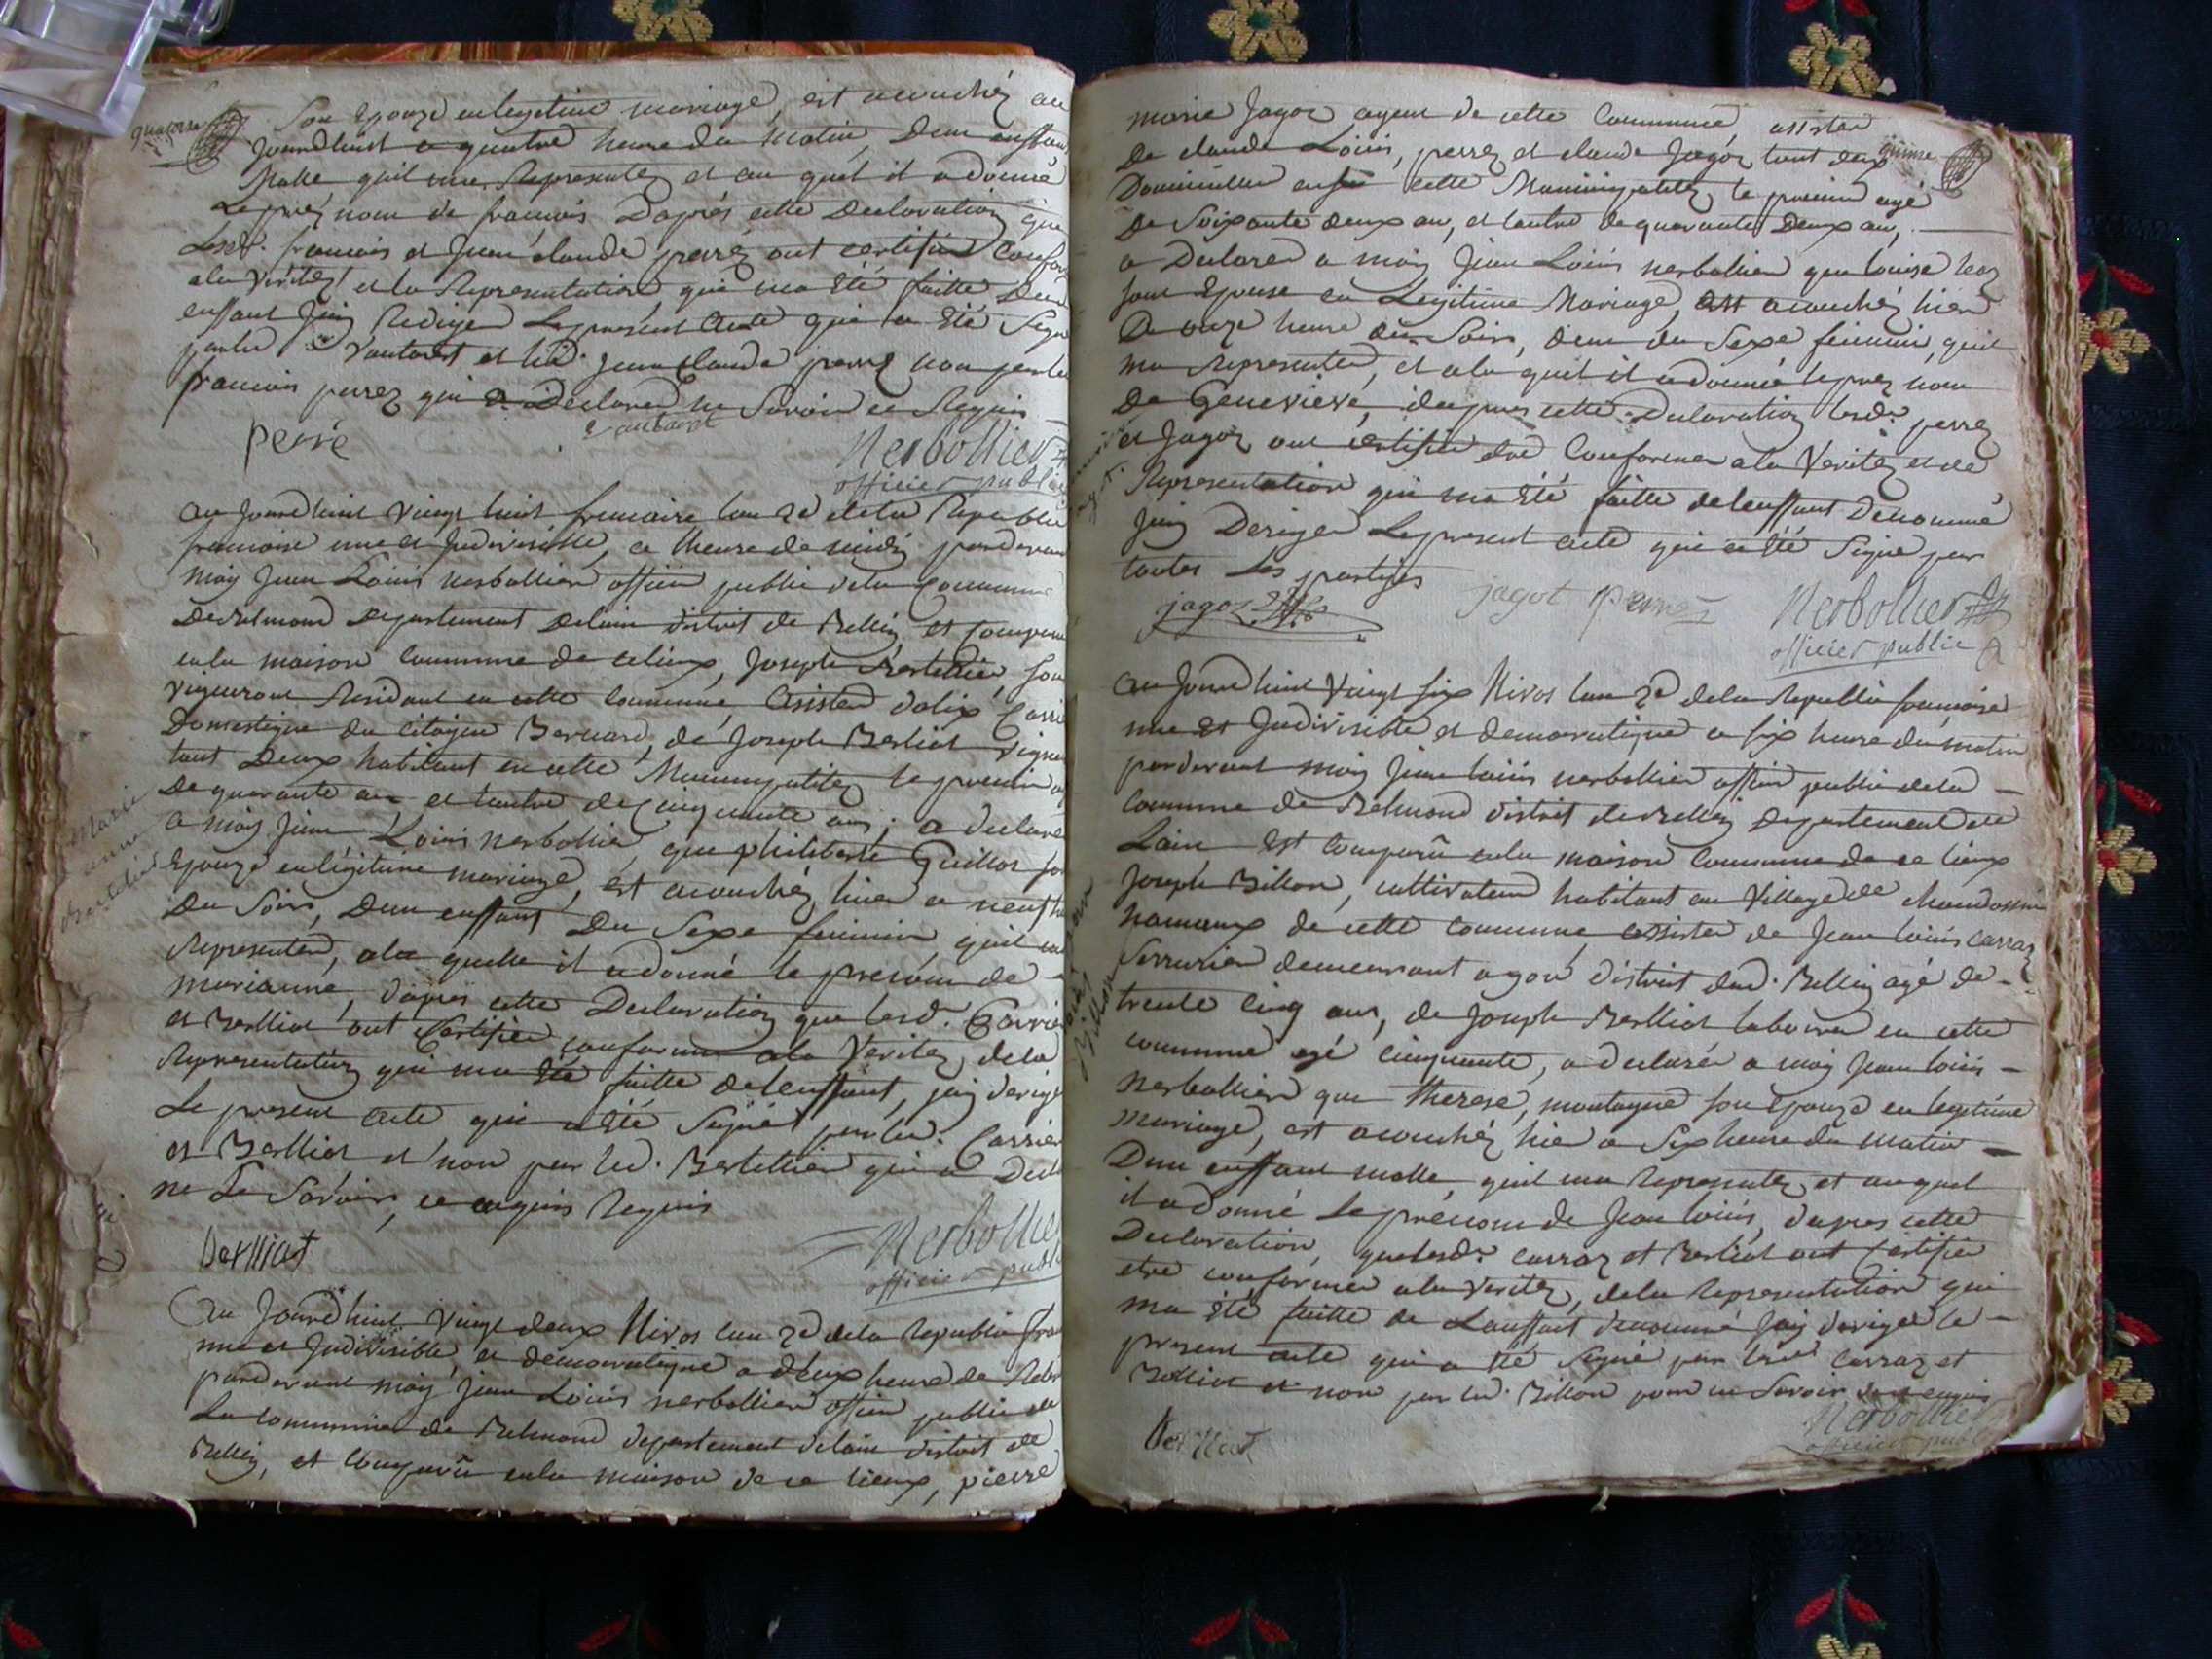 quatorze
Son Epouze en legitime mariage, est acouchéz au
Jourdhuit a quatre heure du Matin, Dun enffant
Malle quil ma Representez et au quel il a donné
Le prez nom de francois Daprés cette Declaration que
Lesd. francois et Jean claude perréz ont certifier conform
a la Véritéz et la Representation qui ma Eté faitte Dud
enffant Jaiy Rediger Le present Acte qui a Eté Signe
par led Vautaret et led. Jean claude perrez non par led
francois perrez qui a Declarer ne Savoir ce Requis
perré
Nerbollier
officier public
au Jourdhuit vingt huit frimaire lan 2e de la Republi
francoise une et Indivisible, a lheure de midy pardevant
moy Jean Loüis Nerbollier officier public de la Commune
de Belmond Departement De lain district de Belley est Comparu
en la maison Commune de ce lieux, Joseph Bertettier fou
vigneront Residant en cette commune, Asister
Domestique du Citoyen Bernard, de Joseph Berliot vigner
tout Deux habittant en cette Municipalitéz le premier a
De quarante an et lautre de Cinquante ans, a declaré
a moy Jean Loüis Nerbollier, que philiberte Guillot so
Epouze en légitime mariage, est acouchéz hier a neuf h
Du Soir, Dun enffant Du Sexe feminin quil ma
Representer, a la quelle il a donné le prenom de
marianne, dapres cette Declaration que lesd. Carrier
et Berlliot ont Certifier conforme a la Veritez, de la
Representation qui ma Eté faitte de lenffant, jaiy deriger
Le present acte qui a Eté Signé par led. Carrier
et Berlliot et non par led. Bertettier qui a Decla
ne Le Savoir, ce enquis Requis
Berlliat
Nerbollier
officier publi
Au Jourdhuit Vingt deux Nivos lan 2e de la Republi fra
une et Indivisible, et democratique a deux heure de Relev
pardevant moy Jean Loüis Nerbollier officier public de
La Commune de Belmond departement de lain district de
Belley, est Comparû en la maison de ce lieux, pierre
quinse
marie Jagoz agent de cette Commune, assister
De claude Loüis perrez et claude Jagoz tout deux
Domicillier en cette Municipalitéz le premier agé
De Soixante deux an, et lautre de quarante Deux an,
a Declarer a moy Jean Loüis nerbollier que louise
Sont Epouse en Legitime Mariage, est acouchéz hier
A onze heure du Soir, dun du Sexe feminin, quil
ma Representer, et a la quel il a donnée le prez nom
De Geneviéve, dapres cette Declaration lesdt. perrez
et Jagoz ont certifier etre Conforme a la Veritéz et de
Representation qui ma Eté faitte de lenffant Denommé
Jaiy Deriger Le present acte qui a Eté Signe par
toutes Les partyes
jagoz jagot perrez Nerbollier
officier public
Au Jourdhuit Vingt Six Nivos lan 2e de la Republi francoise
une et Indivisible et democratique a six heure du matin
pardevant moy Jean loüis nerbollier officier public de la
Commune de Belmond district de Belley Departement de
Lain Est Comparû en la maison Commune de ce lieux
Joseph Billon, cultivateur habitant au Village de
hamaux de cette commune assister de Jean loüis carraz
Serrurier demeurant a district dud. Belley agé de
trente cinq ans, de Joseph Berlliot laboureur en cette
commune agé cinquante, a declarér a moy Jean loüis
Nerbollier que therese, montagne son Epouze en legetime
mariage, est acouchéz hier a Six heure du matin
Dun enffant malle, quil ma Representéz et au quel
il a donné Le prenom de Jean loüis, dapres cette
Declaration, que lesdt. carraz et Berliot ont Certifier
etre conforme a la veritéz, de la Representation qui
ma Eté faitte de Lanffant denommé Jaiy deriger le
present acte qui a Eté Signé par lesd carraz et
Berliot et non par led. Billon pour ne Savoir enquis
Berlliat
Nerbollier
officier publi